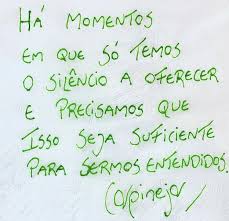 HÁ MOMENTOS
EM QUE SÓ TEMOS
O SILÊNCIO A OFERECER
E PRECISAMOS QUE
ISSO SEJA SUFICIENTE
PARA SERMOS ENTENDIDOS.
Carpinejar